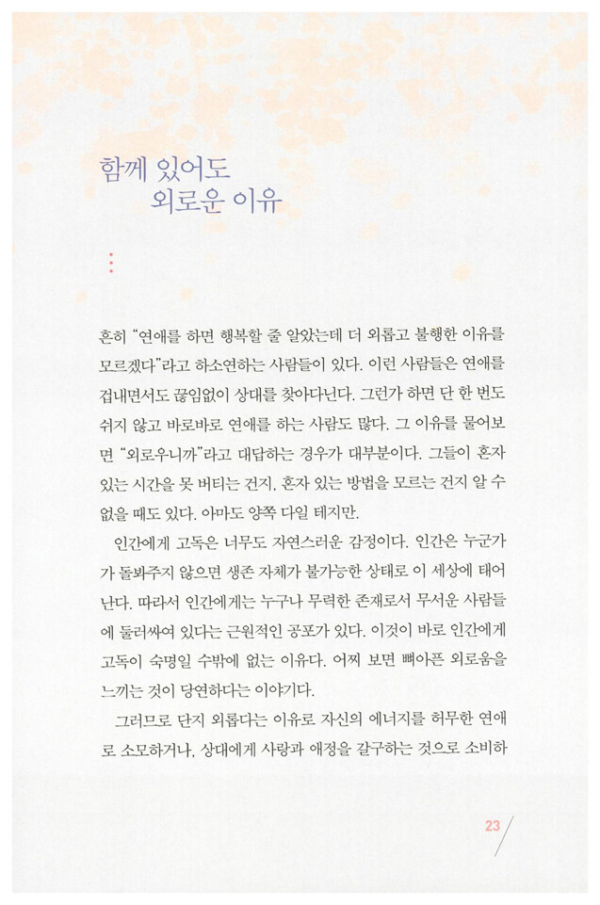 함께 있어도
외로운 이유
흔히 “연애를 하면 행복할 줄 알았는데 더 외롭고 불행한 이유를
모르겠다”라고 하소연하는 사람들이 있다. 이런 사람들은 연애를
겁내면서도 끊임없이 상대를 찾아다닌다. 그런가 하면 단 한 번도
쉬지 않고 바로바로 연애를 하는 사람도 많다. 그 이유를 물어보
면 “외로우니까”라고 대답하는 경우가 대부분이다. 그들이 혼자
있는 시간을 못 버티는 건지, 혼자 있는 방법을 모르는 건지 알 수
없을 때도 있다. 아마도 양쪽 다일 테지만.
인간에게 고독은 너무도 자연스러운 감정이다. 인간은 누군가
가 돌봐주지 않으면 생존 자체가 불가능한 상태로 이 세상에 태어
난다. 따라서 인간에게는 누구나 무력한 존재로서 무서운 사람들
에 둘러싸여 있다는 근원적인 공포가 있다. 이것이 바로 인간에게
고독이 숙명일 수밖에 없는 이유다. 어찌 보면 뼈아픈 외로움을
느끼는 것이 당연하다는 이야기다.
그러므로 단지 외롭다는 이유로 자신의 에너지를 허무한 연애
로 소모하거나, 상대에게 사랑과 애정을 갈구하는 것으로 소비하
23